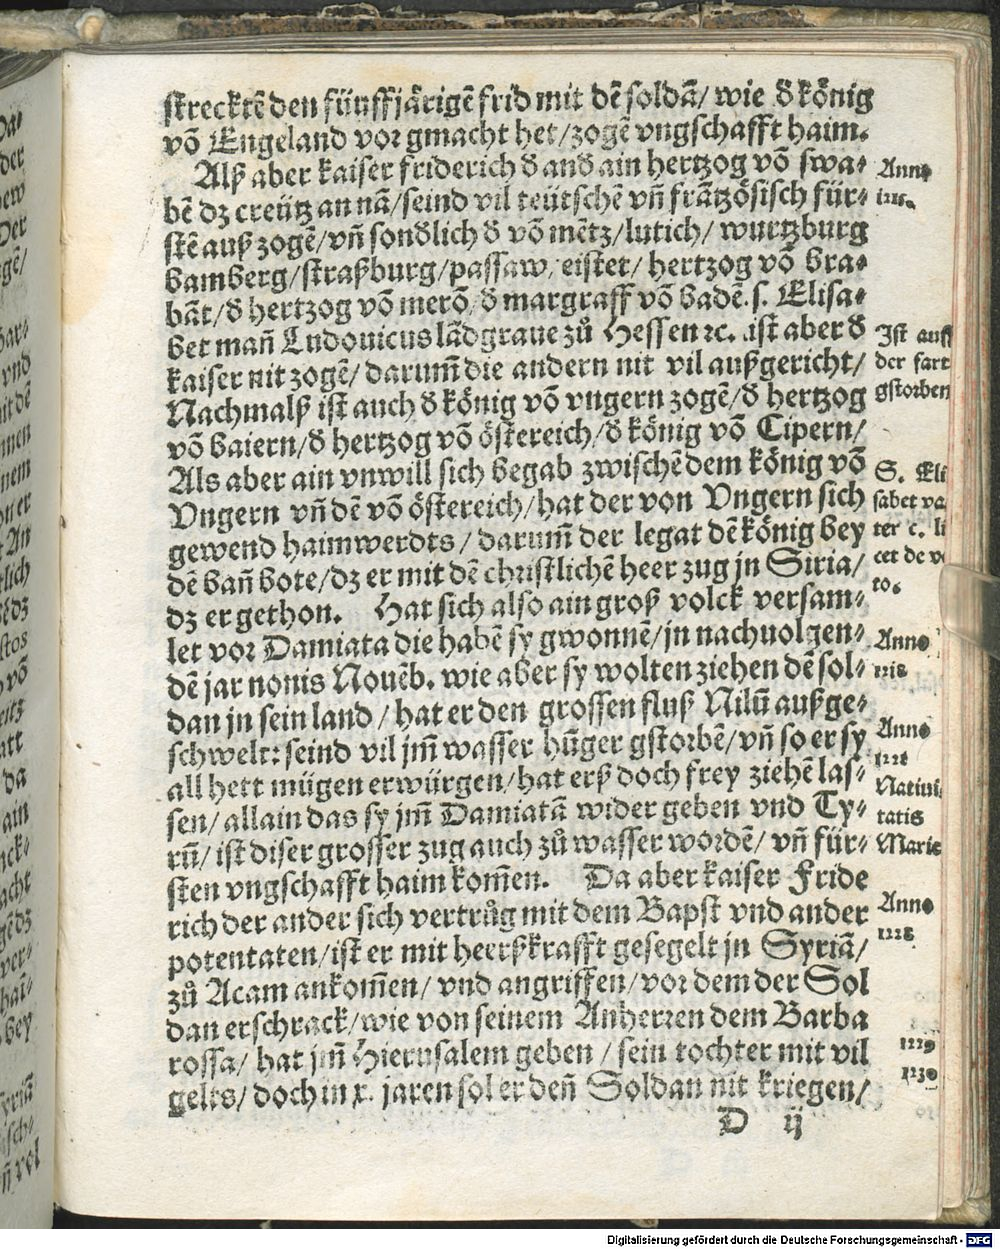 strecktē den fünffjärigē frid mit dē soldā/ wie đ könig
vō Engeland vor gmacht het/zogē vngschafft haim.
Alß aber kaiser friderich đ anđ ain hertzog vō swa⸗
bē dz creütz an nā/seind vil teütschē vn̄ frātzösisch für⸗
stē auß zogē/vn̄ sonđlich đ vō mētz/lutich/ wurtzburg
bamberg/straßburg/passaw/eistet/ hertzog vō bra⸗
bāt/đ hertzog vō merō/đ margraff vō badē. s. Elisa⸗
bet man̄ Ludouicus lādgraue zů Hessen ꝛc. ist aber đ
kaiser nit zogē/ darum̄ die andern nit vil außgericht/
Nachmalß ist auch đ könig vō vngern zogē/đ hertzog
vō baiern/đ hertzog vō östereich/đ könig vō Cipern/
Als aber ain vnwill sich begab zwischē dem könig vō
Vngern vn̄ dē vō östereich/hat der von Vngern sich
gewend haimwerdts/ darum̄ der legat dē könig bey
dē ban̄ bote/dz er mit dē christlichē heer zug jn Siria/
dz er gethon. Hat sich also ain groß volck versam⸗
let vor Damiata die habē sy gwonnē/jn nachuolgen⸗
dē jar nonis Nouēb. wie aber sy wolten ziehen dē sol⸗
dan jn sein land/ hat er den grossen fluß Nilū außge⸗
schwelt: seind vil jm̄ wasser hūger gstorbē/vn̄ so er sy
all hett mügen erwürgen/hat erß doch frey ziehē las⸗
sen/ allain das sy jm̄ Damiatā wider geben vnd Ty⸗
rū/ ist diser grosser zug auch zů wasser wordē/ vn̄ für⸗
sten vngschafft haim kom̄en. Da aber kaiser Fride
rich der ander sich vertrůg mit dem Bapst vnd ander
potentaten/ist er mit heerßkrafft gesegelt jn Syriā/
zů Acam ankom̄en/ vnd angriffen/vor dem der Sol
dan erschrack/wie von seinem Anherren dem Barba
rossa/ hat jm̄ Hierusalem geben/ sein tochter mit vil
gelts/ doch in x. jaren sol er den̄ Soldan nit kriegen/
D ij
Anno
Ist auff
der fart
gstorben
S. Eli
sabet va
ter c. li
cet de vo
to.
Anno
Anno
Natiui
tatis
Marie
Anno
1228
1229
1230
Digitalisierung gefördert durch die Deutsche Forschungsgemeinschaft - DFG